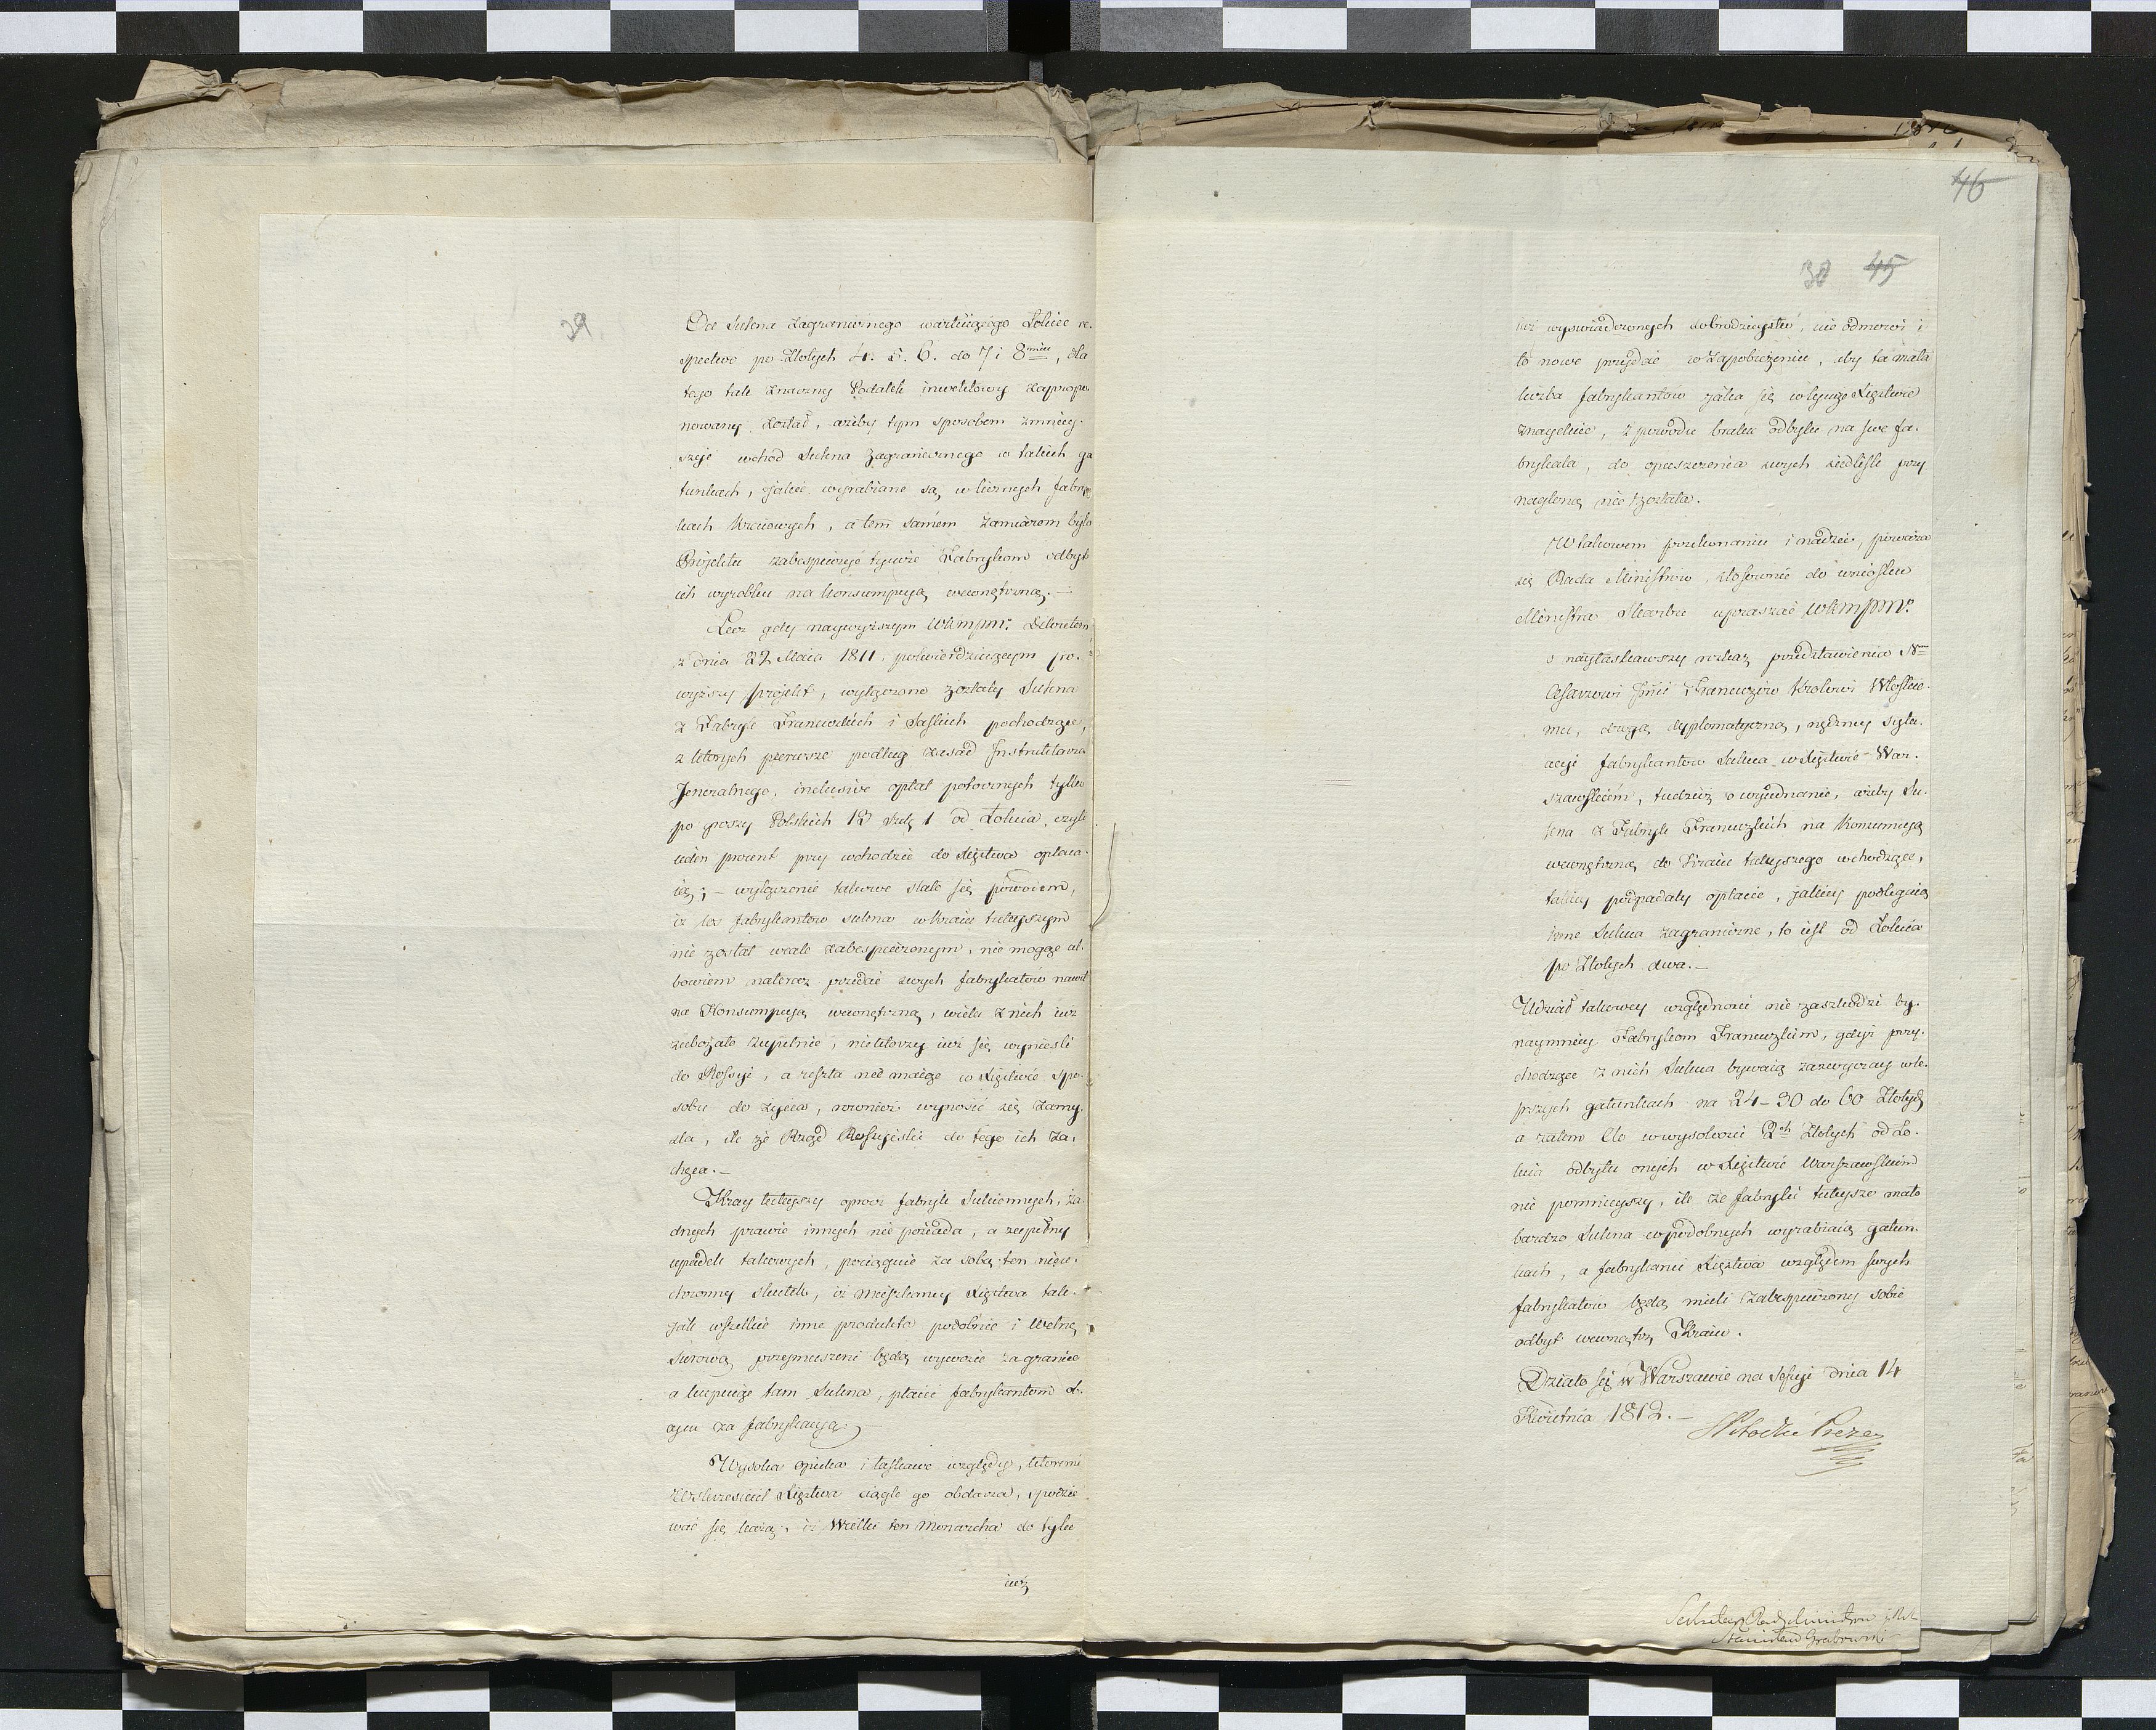 29
Od Sukna zagranicznego wartuiącego Łokiec re-
spective po Złotych 4. 5. 6. do 7 i 8miu, dla
tego tak znaczny Podatek inwektowy zapropo-
nowany został, ażeby tym sposobem zmniey-
szyć wchod Sukna Zagranicznego w takich ga
tunkach, jakie wyrabiane są w licznych fabry
kach kraiowych, a tem samem zamiarem było
Projektu zabespieczyć tymże Fabrykom odbyt
ich wyrobku na konsumpcyą wewnętrzną.—
Lecz gdy naywyższym WKMPM. Dekretem
z dnia 22 Maia 1811. potwierdzaiącym po-
wyższy projekt, wyłączone zostały Sukna
z Fabryk Francuzkich i Saskich pochodzące,
z ktorych pierwsze podług zasad Instruktarza
Jeneralnego, inclusive opłat pobocznych tylko
po groszy Polskich 12 Szelg 1 od Łokcia, czyli
ieden procent przy wchodzie do Xięstwa opłaca-
ią; — wyłączenie takowe stało się powodem,
iż los fabrykantow sukna w kraiu tuteyszym
nie został wcale zabespieczonym, nie mogąc al-
bowiem nateraz przedać swych fabrykatow nawet
na Konsumpcyą wewnętrzną, wielu z nich iuż
zubożało zupełnie, niektorzy iuż się wynieśli
do Rossyi, a reszta nie maiąc w Xięstwie spo-
sobu do życia, rownież wynosić się zamy-
śla, ile że Rząd Rossyiski do tego ich za-
chęca.—
Kray tuteyszy oprocz fabryk Sukiennych, ża-
dnych prawie innych nie posiada, a zupełny
upadek takowych, pociągnie za sobą ten nieu-
chronny skutek, iż mieszkancy Xięstwa tak-
jak wszelkie inne produkta podobnie i Wełnę
surową przymuszeni będą wywozić za granicę
a kupuiąc tam Sukna, płacić fabrykantom o-
ych za fabrykacyą.—
Wysoka opieka i łaskawe względy, ktoremi
Wskrzesiciel Xięstwa ciągle go obdarza, spodzie
wać się każą, iż Wielki ten Monarcha do tylu
iuż
46
30 45
iuż wyswiadczonych dobrodzieystw, nie odmowi i
to nowe przydać w zapobieżeniu, aby ta mała
liczba fabrykantow jaka się w tymże Xięstwie
znayduie, z powodu braku odbytu na swe fa-
brykata, do opuszczenia swych siedlisk przy
naglona nie została.
W takowem przekonaniu i nadziei, poważa
się Rada Ministrow, stosownie do wniosku
Ministra Skarbu upraszać WKMPM.
o nayłaskawszy rozkaz przedstawienia N.
Cesarzowi Jmci Francuzow Krolowi Włoskie-
mu, drogą dyplomatyczną, nędzney sytu-
acyi fabrykantow Sukna w Xięstwie War-
szawskiem, tudzież o wyiednanie, ażeby Su-
kna z Fabryk Francuzkich na Konsumcyą
wewnętrzną do Kraiu tuteyszego wchodzące,
takiey podpadały opłacie, jakiey podlegaią
inne Sukna zagraniczne, to iest od Łokcia
po Złotych dwa.—
Udział takowey względności nie zaszkodzi by-
naymniey Fabrykom Francuzkim, gdyż przy-
chodzące z nich Sukna bywaią zazwyczay w le-
pszych gatunkach na 24–30 do 60 Złotych
a zatem Cło w wysokości 2ch Złotych od Ło-
kcia odbytu onych w Xięstwie Warszawskim
nie pomnieyszy, ile że fabryki tuteysze mało
bardzo Sukna w podobnych wyrabiaią gatun-
kach, a fabrykanci Xięstwa względem swych
fabrykatow będą mieli zabespieczony sobie
odbyt wewnątrz Kraiu.
Działo się w Warszawie na Sessyi dnia 14
Kwietnia 1812.—
S Potocki Prezes
Sekretarz Rady Ministrow
Stanisław Grabowski